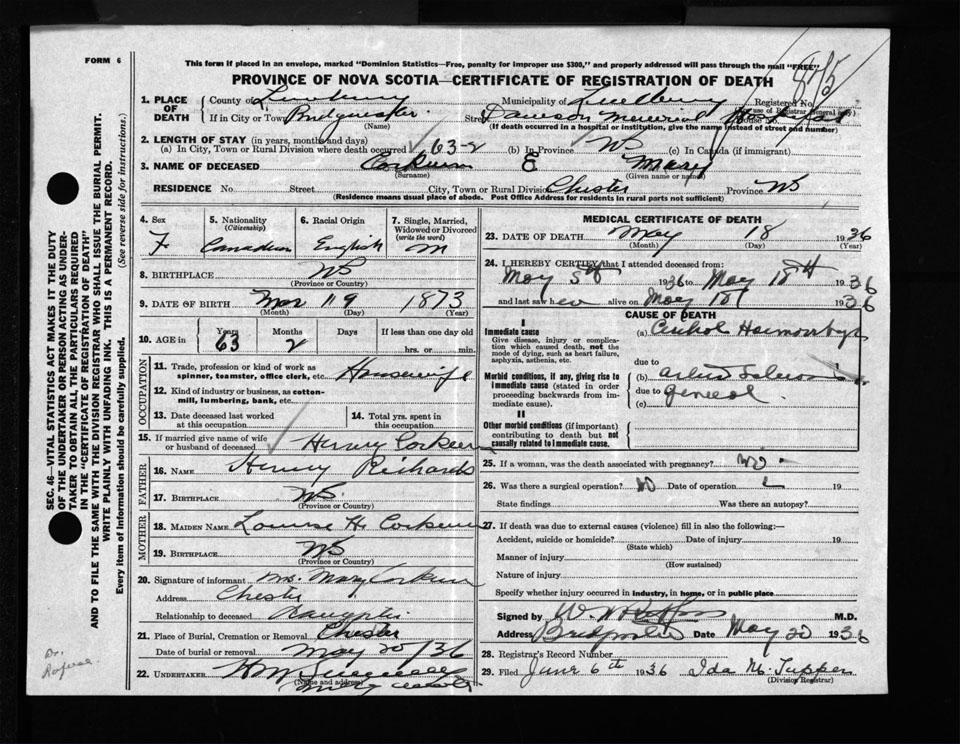 FORM 6
This form if placed in an envelope, marked "Dominion Statistics—Free, penalty for improper use $300," and properly addressed will pass through the mail "FREE"
PROVINCE OF NOVA SCOTIA—CERTIFICATE OF REGISTRATION OF DEATH
1. PLACE OF DEATH
County of Lunenburg Municipality of Lunenburg Registered No.
If in City or Town Bridgewater Street Dawson Memorial Hospital
(Name) (If death occurred in a hospital or institution, give the name instead of street and number)
2. LENGTH OF STAY (in years, months and days)
(a) In City, Town or Rural Division where death occurred 63-2 (b) In Province NS (c) In Canada (if immigrant)
3. NAME OF DECEASED Corkum E Mary
(Surname) (Given name or names)
RESIDENCE No. Street City, Town or Rural Division Chester Province NS
(Residence means usual place of abode. Post Office Address for residents in rural parts not sufficient)
4. Sex F
5. Nationality (Citizenship) Canadian
6. Racial Origin English
7. Single, Married, Widowed or Divorced (write the word) M
8. BIRTHPLACE NS
(Province or Country)
9. DATE OF BIRTH Mar 19 1873
(Month) (Day) (Year)
10. AGE in Years 63 Months 2 Days If less than one day old hrs. or min.
OCCUPATION
11. Trade, profession or kind of work as spinner, teamster, office clerk, etc. Housewife
12. Kind of industry or business, as cotton-mill, lumbering, bank, etc.
13. Date deceased last worked at this occupation
14. Total yrs. spent in this occupation
15. If married give name of wife or husband of deceased Henry Corkum
FATHER
16. NAME Henry Richards
17. BIRTHPLACE NS
(Province or Country)
MOTHER
18. MAIDEN NAME Louise H. Corkum
19. BIRTHPLACE NS
(Province or Country)
20. Signature of informant Mrs. Mary Corkum
Address Chester
Relationship to deceased Daughter
21. Place of Burial, Cremation or Removal Chester
Date of burial or removal May 20/36
22. UNDERTAKER
(Name and address)
MEDICAL CERTIFICATE OF DEATH
23. DATE OF DEATH May 18 1936
(Month) (Day) (Year)
24. I HEREBY CERTIFY that I attended deceased from:
May 5th 1936 to May 18th 1936
and last saw her alive on May 18 1936
CAUSE OF DEATH
I
Immediate cause
Give disease, injury or complication which caused death, not the mode of dying, such as heart failure, asphyxia, asthenia, etc.
(a) Haemorrhage
due to
Morbid conditions, if any, giving rise to immediate cause (stated in order proceeding backwards from immediate cause).
(b)
due to General
(c)
II
Other morbid conditions (if important) contributing to death but not causally related to immediate cause.
25. If a woman, was the death associated with pregnancy? No
26. Was there a surgical operation? Date of operation 19
State findings Was there an autopsy?
27. If death was due to external causes (violence) fill in also the following:—
Accident, suicide or homicide? Date of injury 19
(State which)
Manner of injury
(How sustained)
Nature of injury
Specify whether injury occurred in industry, in home, or in public place
Signed by M.D.
Address Bridgewater Date May 20 1936
28. Registrar's Record Number
29. Filed June 6th 1936 Ida M. Tupper
(Division Registrar)
SEC. 46—VITAL STATISTICS ACT MAKES IT THE DUTY
OF THE UNDERTAKER OR PERSON ACTING AS UNDER-
TAKER TO OBTAIN ALL THE PARTICULARS REQUIRED
IN THE "CERTIFICATE OF REGISTRATION OF DEATH"
AND TO FILE THE SAME WITH THE DIVISION REGISTRAR WHO SHALL ISSUE THE BURIAL PERMIT.
WRITE PLAINLY WITH UNFADING INK. THIS IS A PERMANENT RECORD.
Every item of Information should be carefully supplied. (See reverse side for instructions.)